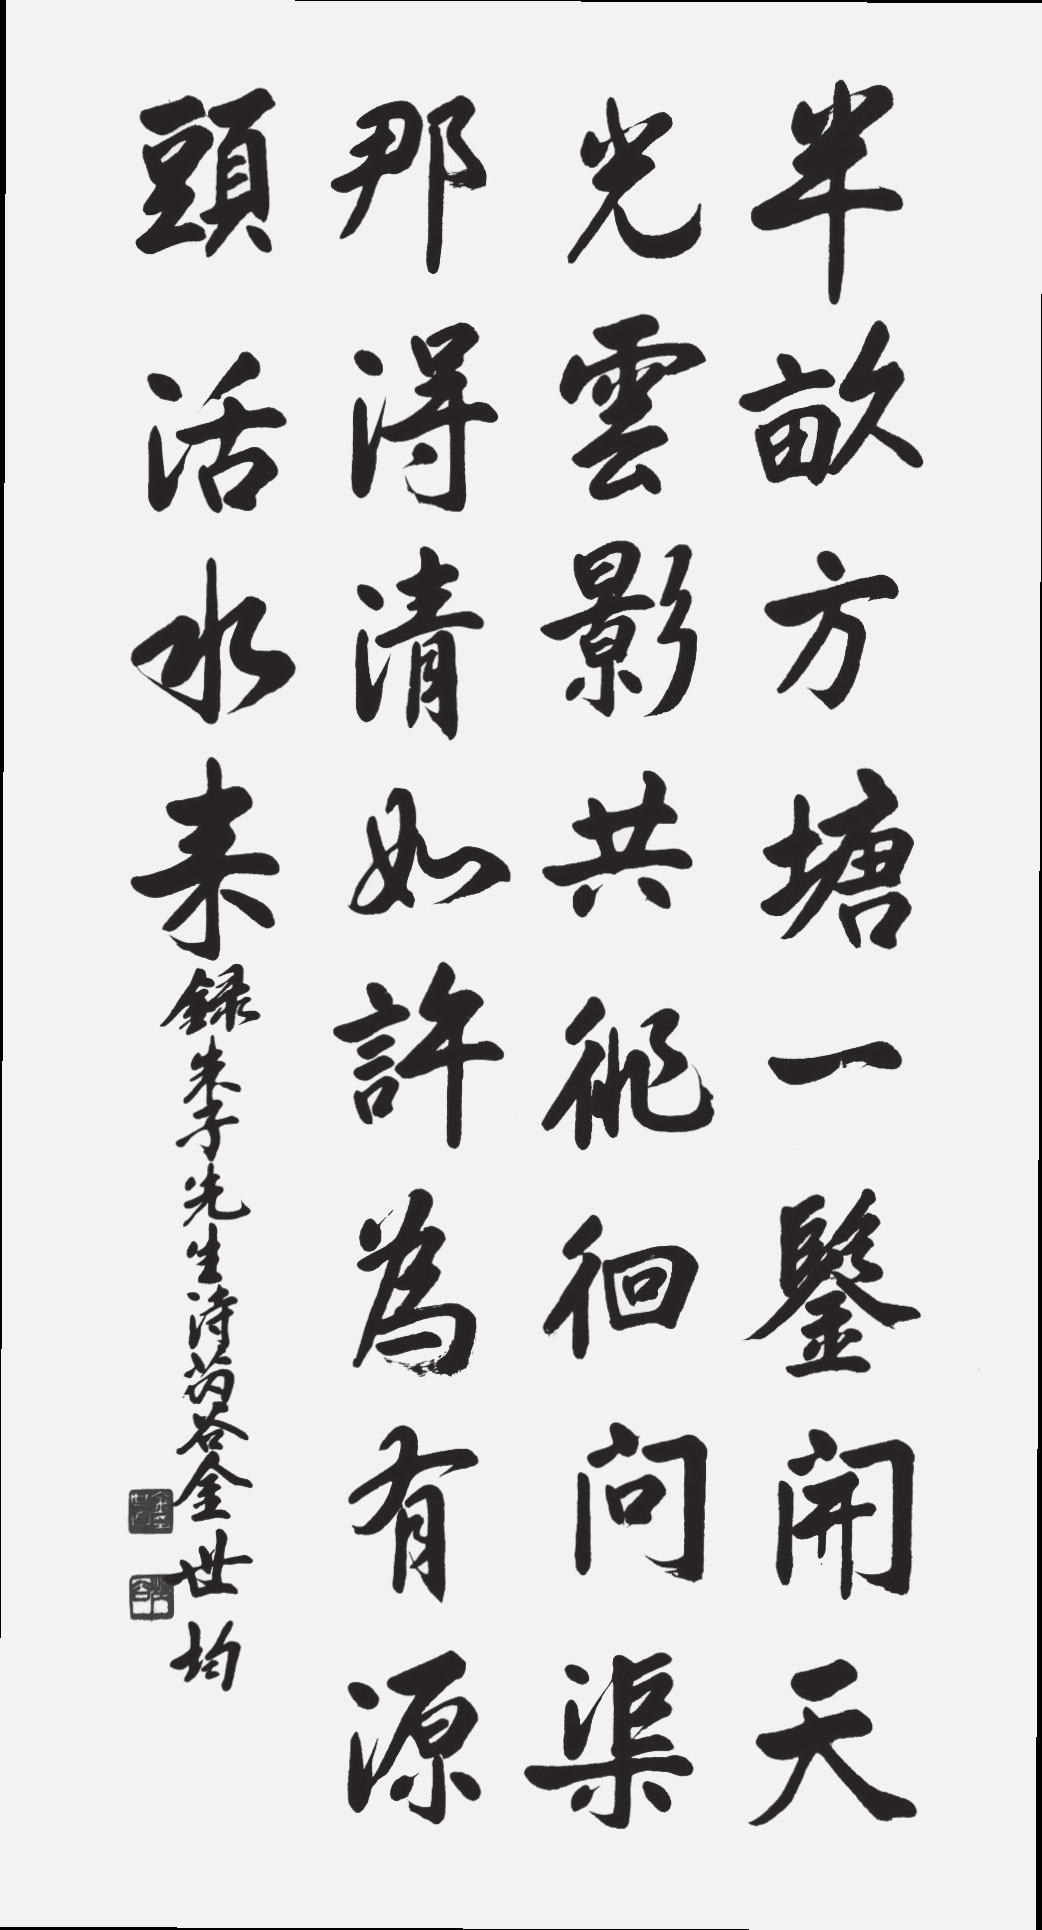 半畝方塘一鑒開天
光雲影共徘徊問渠
那得清如許為有源
頭活水来録朱子先生詩芮谷金世均